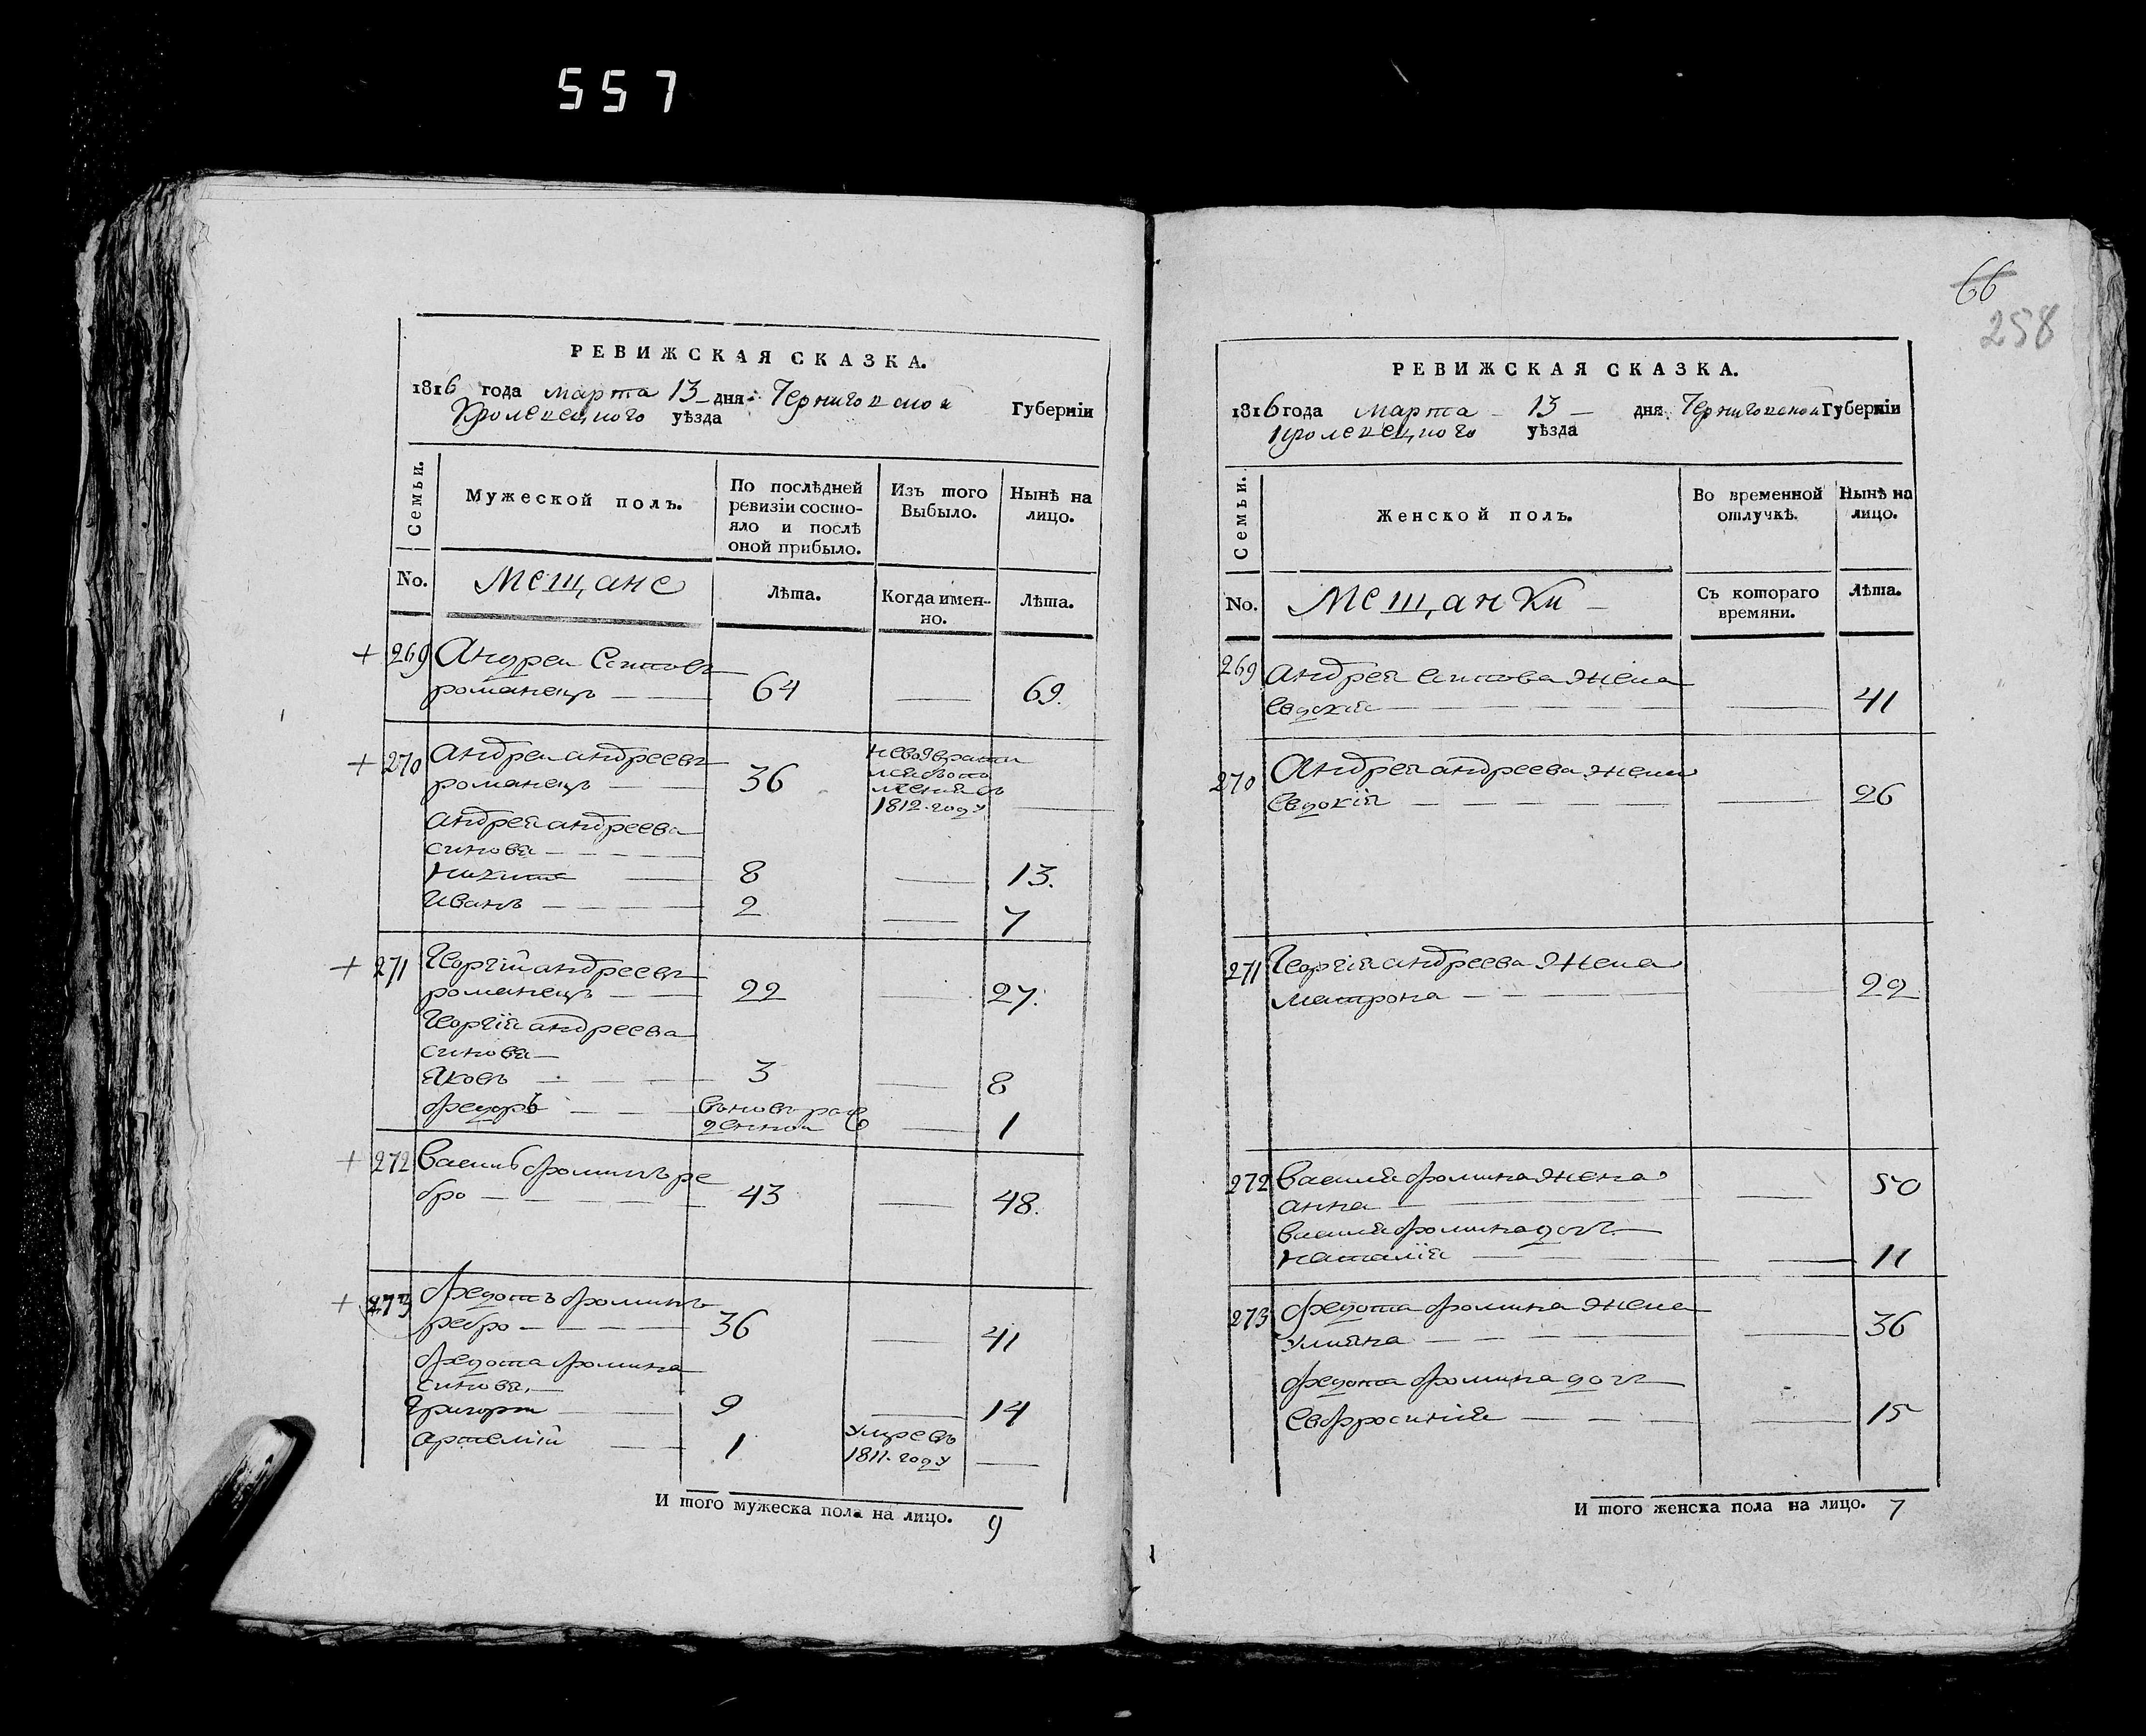 557
66
258
РЕВИЖСКАЯ СКАЗКА.
1816 года марта 13 дня Черниговской Губерніи
Кролевецкого уѣзда
Семьи.
Мужеской полъ.
По послѣдней ревизіи состо-
яло и послѣ
оной прибыло.
Изъ того
Выбыло.
Нынѣ на
лицо.
No.
Мещане
Лѣта.
Когда имен-
но.
Лѣта.
+ 269 Андреи
романецъ 64 69.
+ 270 андреи андреевъ
романецъ 36
невозврати
1812. году
андрея андреева
синовя
никита 8 13.
иванъ 2 7
+ 271 Георгій андреевъ
романецъ 22 27.
Георгія андреева
синовя
яковъ 3 8
федоръ вновь рож
денной 1
+ 272 Василь фоминъ ре
бро 43 48.
+ 273 федотъ фоминъ
ребро 36 41
федота фомина
синовя
григори 9 14
артемій 1 умре въ
1811. году
И того мужеска пола на лицо. 9
РЕВИЖСКАЯ СКАЗКА.
1816 года марта 13 дня Черниговской Губерніи
Кролевецкого уѣзда
Семьи.
Женской полъ.
Во временной
отлучкѣ.
Нынѣ на
лицо.
No.
Мещанки
Съ котораго
времяни.
Лѣта.
269 андрея жена
евдокія 41
270 Андрея андреева жена
Евдокія 26
271 Георгія андреева жена
матрона 22
272 Василия фомина жена
анна 50
василия фомина доч
наталія 11
273 федота фомина жена
улияна 36
федота фомина доч
Евфросинія 15
И того женска пола на лицо. 7